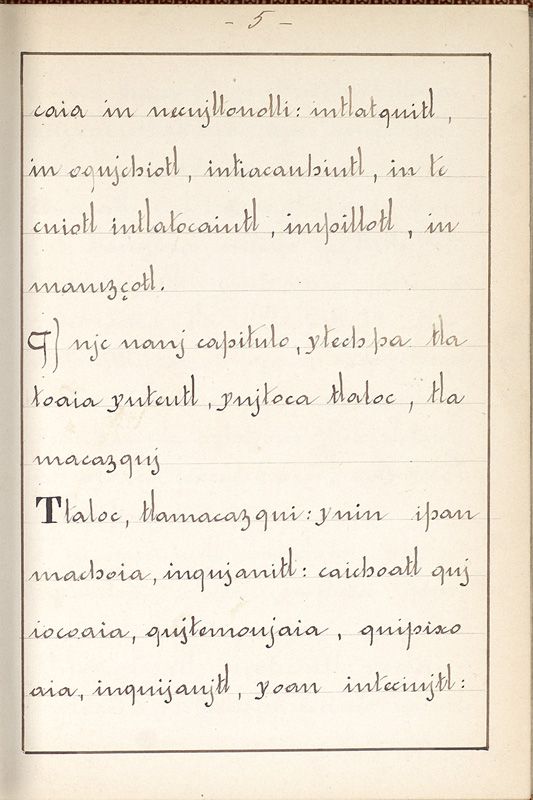 - 5 -
caia in necujltonolli: intlatquitl,
in oqujchiotl, intiacauhiutl, in te
cuiotl intlatocaiutl, impillotl, in
maujzçotl.
¶ njc nauj capitulo, ytechpa tla
toaia ynteutl, ynjtoca tlaloc, tla
macazquj
Tlaloc, tlamacazqui: ynin ipan
machoia, inqujauitl: caichoatl quj
iocoaia, qujtemoujaia, quipixo
aia, inquijaujtl, yoan inteciujtl: